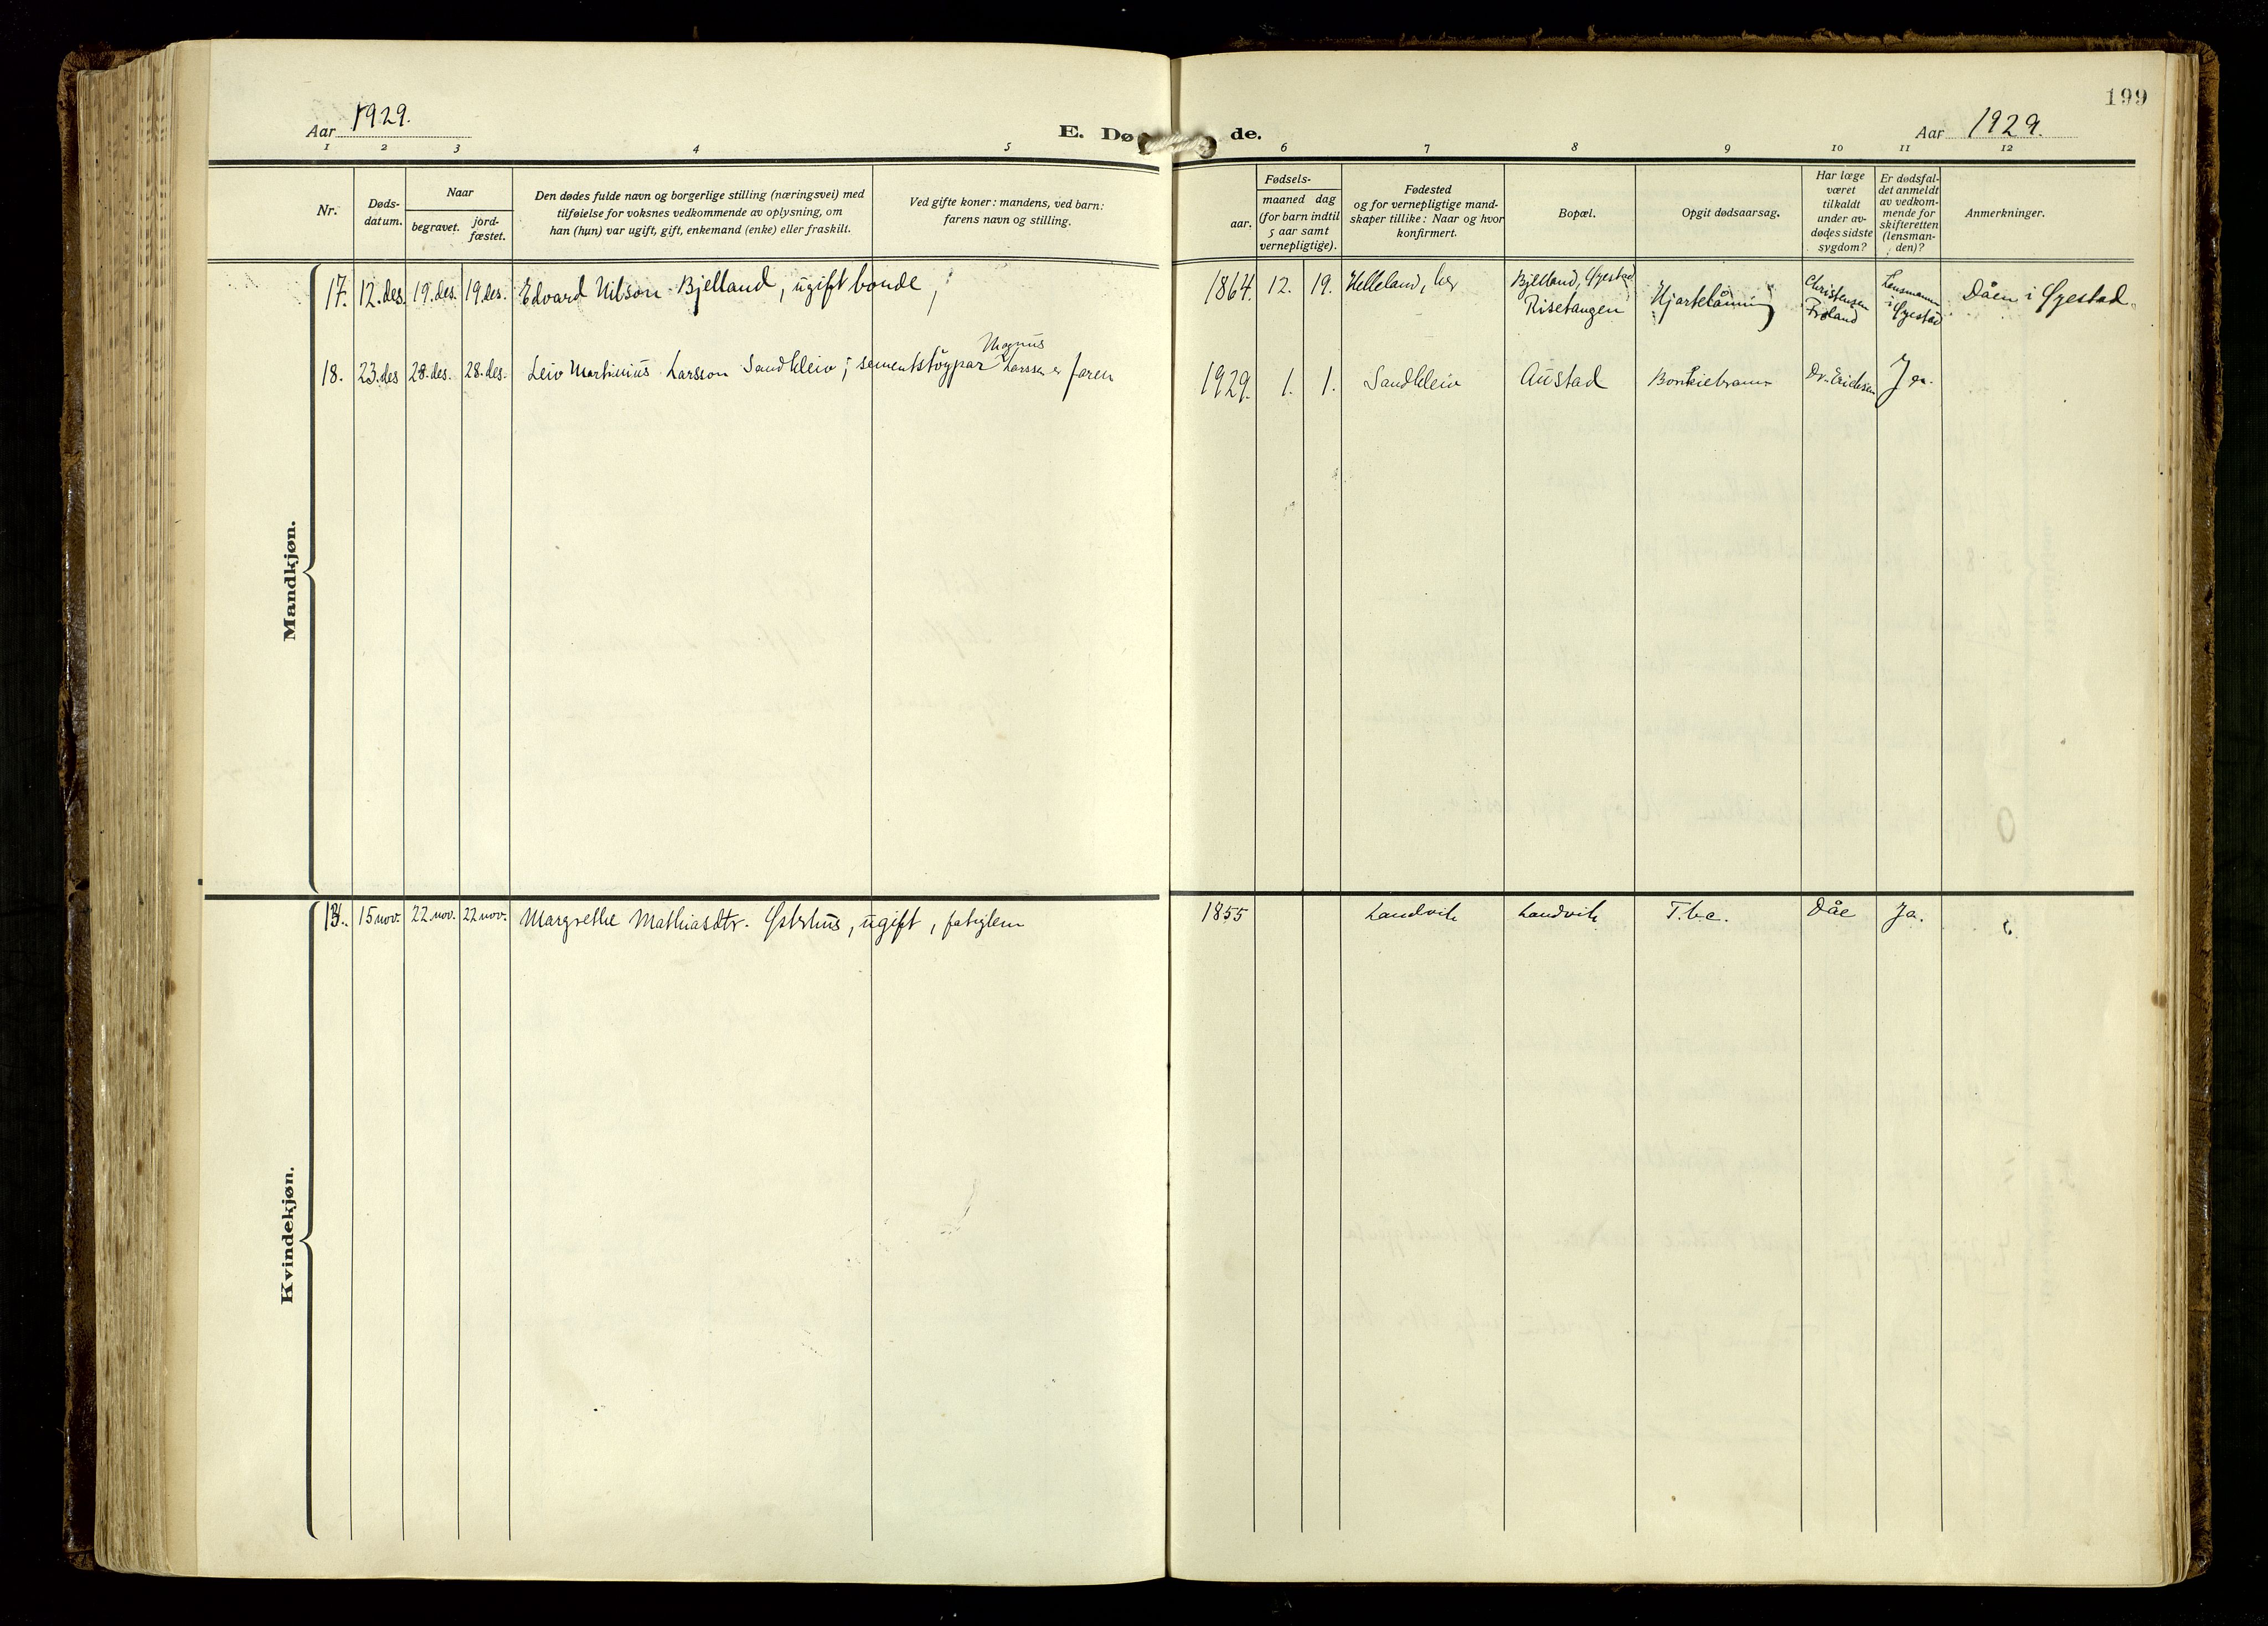 199
Aar 1929.
E. Dø de.
Aar 1929.
1 2 3 4 5 6 7 8 9 10 11 12
Nr.
Døds-
datum.
Naar
begravet.
jord-
fæstet.
Den dødes fulde navn og borgerlige stilling (næringsvei) med
tilføielse for voksnes vedkommende av oplysning, om
han (hun) var ugift, gift, enkemand (enke) eller fraskilt.
Ved gifte koner: mandens, ved barn:
farens navn og stilling.
Fødsels-
aar.
maaned dag
(for barn indtil
5 aar samt
vernepligtige).
Fødested
og for vernepligtige mand-
skaper tillike: Naar og hvor
konfirmert.
Bopæl.
Opgit dødsaarsag.
Har læge
været
tilkaldt
under av-
dødes sidste
sygdom?
Er dødsfal-
det anmeldt
av vedkom-
mende for
skifteretten
(lensman-
den)?
Anmerkninger.
Mandkjøn.
17. 12. des. 19. des. 19. des. Edvard Nilson Bjelland, ugift bonde, 1864. 12. 19. Helleland, her Bjelland, Øyestad
Risetangen Hjartelamning Christensen
Froland Lensmann
i Øyestad Dåen i Øyestad.
18. 23. des 28. des. 28. des. Leiv Martinius Larsson Sandkleiv; sementstøypar Magnus
Larssen er faren 1929. 1. 1. Sandkleiv Austad Dr. Erichsen Ja.
Kvindekjøn.
15 nov. 22 nov. 22 nov. Margrethe Mathiasdtr. Østerhus, ugift, fatiglem 1855 Landvik Landvik T.b.c. Dåe Ja.